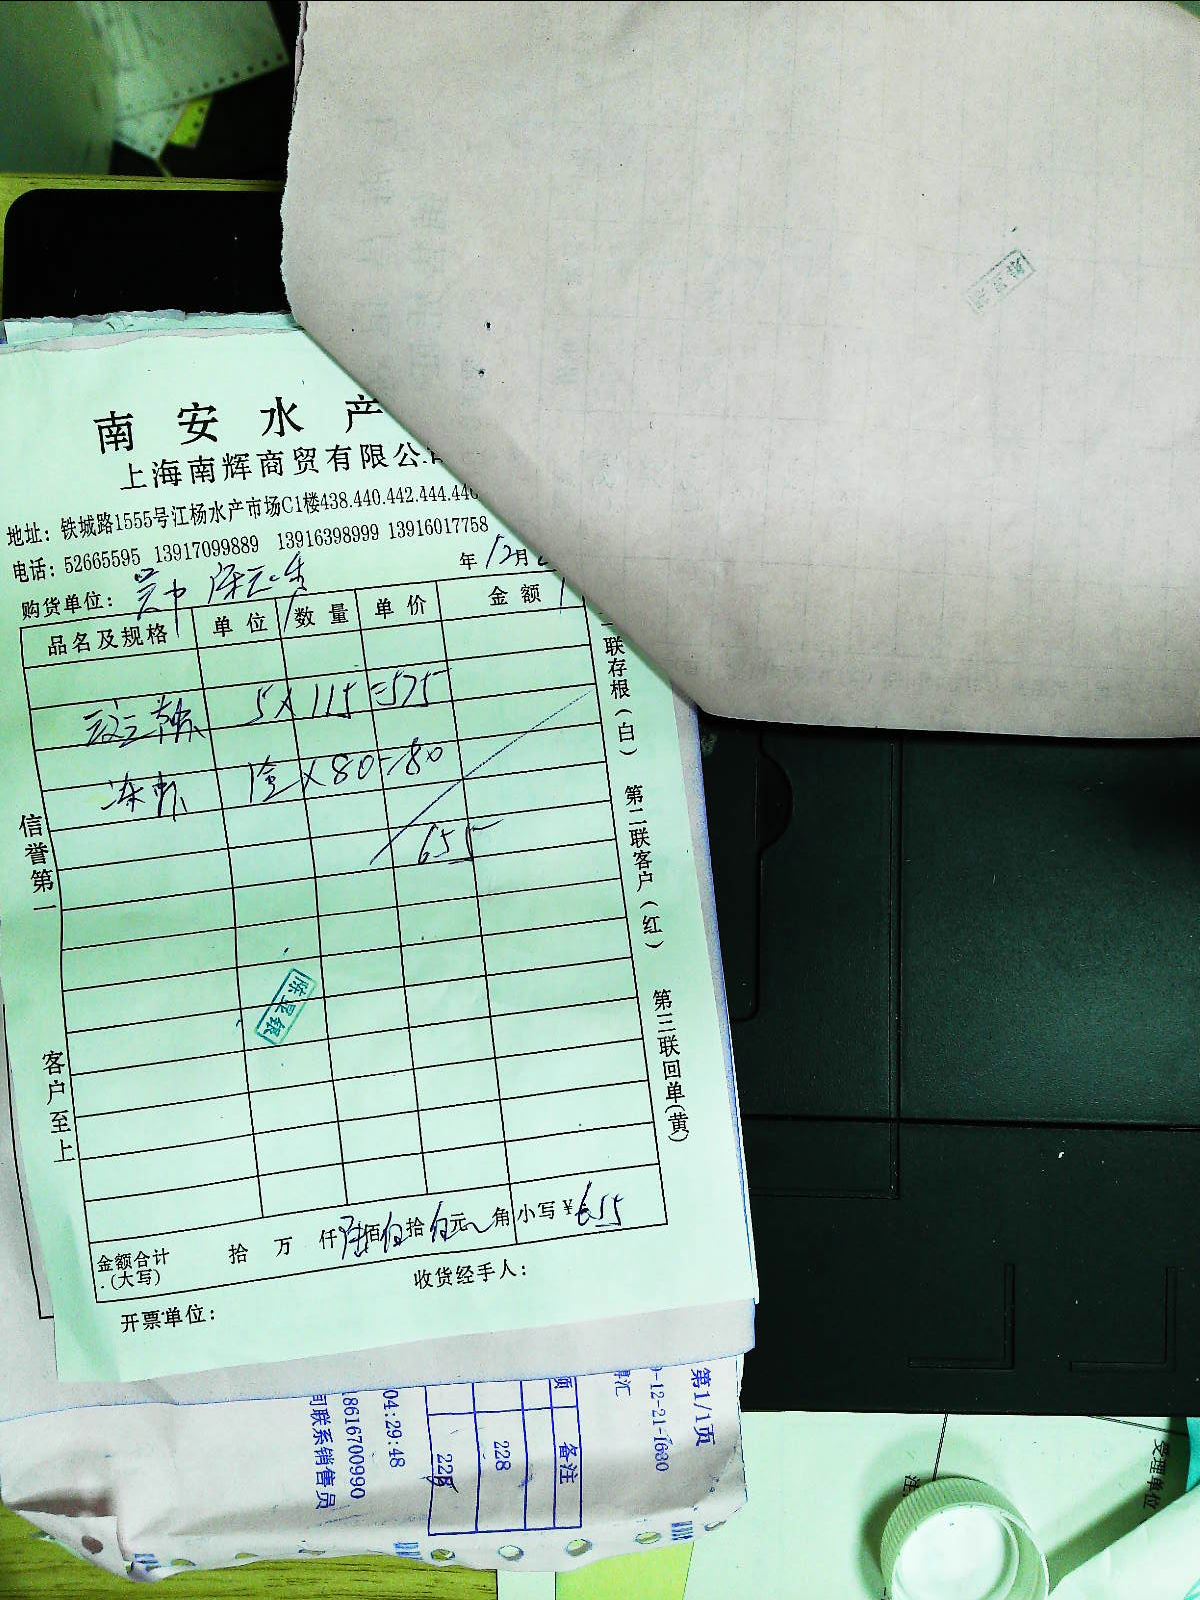 南安水产
上海南辉商贸有限公司
地址：铁城路1555号江杨水产市场C1楼438.440.442.444.446
电话：52665595 13917099889 13916398999 13916017758
年12月
购货单位：吴中
品名及规格 单位 数量 单价 金额
5×115=575
冻虾 1盒×80=80
655
信誉第一
客户至上
联存根（白） 第二联客户（红） 第三联回单（黄）
金额合计（大写） 拾 万 仟陆佰伍拾伍元 角 小写￥655
收货经手人：
开票单位：
第1/1页
-12-21-1680
汇
备注
228
228
04:29:48
18616700990
联系销售员
受理单位